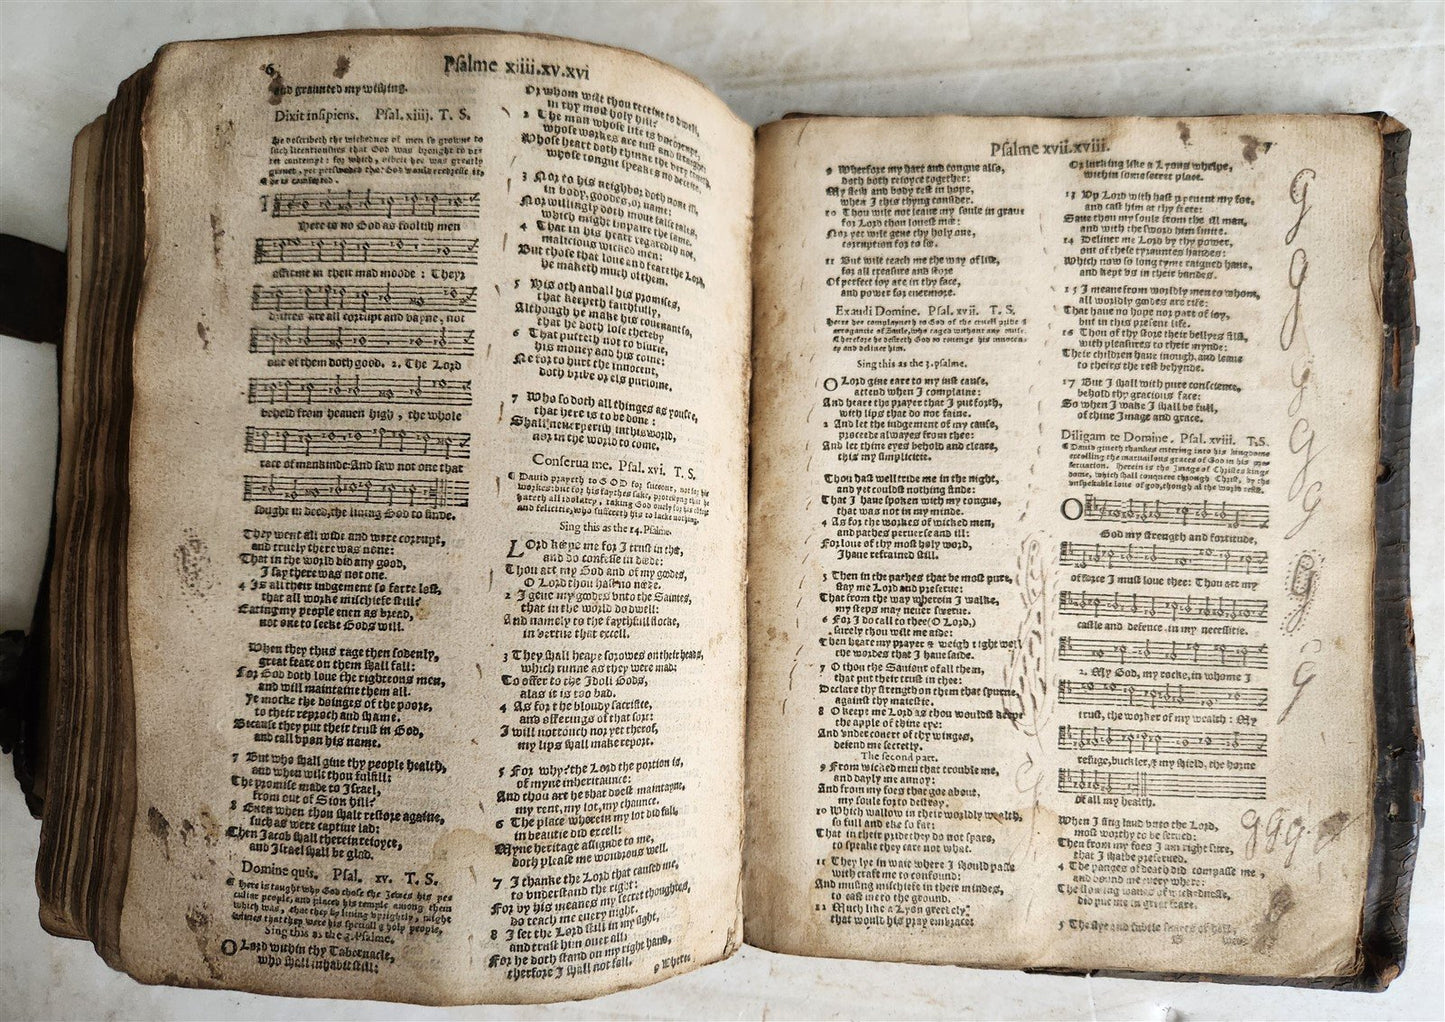 6
Psalme xiiii.xv.xvi
and graunted my wishing.
Dixit insipiens. Psal. xiiij. T. S.
He describeth the wickednes of men so growne to
such licentiousnes that God was brought to vt-
ter contempt: for which, albeit hee was greatly
grieued, yet perswaded that God would redresse it,
he is comforted.
Here is no God as foolish men
affirme in their mad moode: Theyr
driftes are all corrupt and vayne, not
one of them doth good. 2. The Lord
beheld from heauen high, the whole
race of mankinde: And saw not one that
sought in deed, the liuing God to finde.
They went all wide and were corrupt,
and truely there was none:
That in the world did any good,
I say there was not one.
4 Is all their iudgement so farre lost,
that all worke mischiefe still?
Eating my people euen as bread,
not one to seeke Gods will.
When they thus rage then sodenly,
great feare on them shall fall:
For God doth loue the righteous men,
and will maintaine them all.
Ye mocke the doinges of the poore,
to their reproch and shame.
Because they put their trust in God,
and call vpon his name.
7 But who shall giue thy people health,
and when wilt thou fulfill:
The promise made to Israel,
from out of Sion hill?
8 Euen when thou shalt restore againe,
such as were captiue lad:
Then Jacob shall therein reioyce,
and Israel shall be glad.
Domine quis. Psal. xv. T. S.
Here is taught why God chose the Jewes his pe-
culiar people, and places his temple among them
which was, that they by liuing vprightly, might
witnes that they were his speciall & holy people,
Sing this as the 3. Psalme.
O Lord within thy Tabernacle,
who shall inhabit still:
Or whom wilt thou receiue to dwell,
in thy most holy hill?
2 The man whose life is vncorrupt,
whose workes are iust and straight:
Whose heart doth thinke the very trueth,
whose tongue speakes no deceite.
3 Nor to his neighbor doth none ill,
in body, goodes, or name:
Nor willingly doth moue false tales,
which might impaire the same.
4 That in his heart regardeth not,
malicious wicked men:
But those that loue and feare the Lord,
he maketh much of them.
5 His oth and all his promises,
that keepeth faithfully,
Although he make his couenant so,
that he doth lose thereby
6 That putteth not to vsurie,
his money and his coine:
Ne for to hurt the innocent,
doth bribe or els purloine.
7 Who so doth all thinges as you see,
that here is to be done:
Shall neuer perish in this world,
nor in the world to come.
Conserua me. Psal. xvi. T. S.
¶ Dauid prayeth to GOD for succour, not for his
workes: but for his faythes sake, protesting that he
hateth all idolatry, taking God onely for his comfort
and felicitie, who suffereth his to lacke nothing.
Sing this as the 14. Psalme.
LOrd keepe me for I trust in thee,
and do confesse in deede:
Thou art my God and of my goodes,
O Lord thou hast no neede.
2 I geue my goodes vnto the Saintes,
that in the world do dwell:
And namely to the faythfull flocke,
in vertue that excell.
3 They shall heape sorowes on their heads,
which runne as they were mad:
To offer to the Idoll Gods,
alas it is too bad.
4 As for the bloudy sacrifice,
and offerings of that sort:
I will not touch nor yet therof,
my lips shall make report.
5 For why? the Lord the portion is,
of myne inheritaunce:
And thou art he that doest maintayne,
my rent, my lot, my chaunce.
6 The place wherein my lot did fall,
in beautie did excell:
Myne heritage assignde to me,
doth please me wondrous well.
7 I thanke the Lord that caused me,
to vnderstand the right:
For by his meanes my secret thoughtes,
do teach me euery night.
8 I set the Lord still in my sight,
and trust him ouer all:
For he doth stand on my right hand,
therfore I shall not fall.
9 Wherfore
Psalme xvii.xviii.
7
9 Wherfore my hart and tongue also,
doth both reioyce together:
My flesh and body rest in hope,
when I this thyng consider.
10 Thou wilt not leaue my soule in graue
for Lord thou louest me:
Nor yet wilt geue thy holy one,
corruption for to see.
11 But wilt teach me the way of life,
for all treasure and store
Of perfect ioy are in thy face,
and power for euermore.
Exaudi Domine. Psal. xvii. T. S.
Heere hee complayneth to God of the cruell pride &
arrogancie of Saule, who raged without any cause.
Therefore he desireth God to reuenge his innocen-
cy and deliuer him.
Sing this as the 3. psalme.
O Lord giue eare to my iust cause,
attend when I complaine:
And heare the prayer that I put forth,
with lips that do not faine.
2 And let the iudgement of my cause,
procede alwayes from thee:
And let thine eyes behold and cleare,
this my simplicitie.
Thou hast well tride me in the night,
and yet couldst nothing finde:
That I haue spoken with my tongue,
that was not in my minde.
4 As for the workes of wicked men,
and pathes peruerse and ill:
For loue of thy most holy word,
I haue refrained still.
5 Then in the pathes that be most pure,
stay me Lord and preserue:
That from the way wherein I walke,
my steps may neuer swerue.
6 For I do call to thee (O Lord,)
surely thou wilt me aide:
Then heare my prayer & weigh right well
the wordes that I haue saide.
7 O thou the Sauiour of all them,
that put their trust in thee:
Declare thy strength on them that spurne,
against thy maiestie.
8 O keepe me Lord as thou wouldst keepe
the apple of thine eye:
And vnder couert of thy winges,
defend me secretly.
The second part.
9 From wicked men that trouble me,
and dayly me annoy:
And from my foes that goe about,
my soule for to destroy.
10 Which wallow in their worldly wealth,
so full and eke so fat:
That in their pride they do not spare,
to speake they care not what.
11 They lye in waie where I should passe
with craft me to confound:
And musing mischiefe in their mindes,
to cast me to the ground.
12 Much like a Lyon greedely,
that would his pray embrace:
Or lurking like a Lyons whelpe,
within some secret place.
13 Up Lord with hast preuent my foe,
and cast him at thy feete:
Saue thou my soule from the ill man,
and with the sword him smite.
14 Deliuer me Lord by thy power,
out of these tyrauntes handes:
Which now so long tyme raigned haue,
and kept vs in their bandes.
15 I meane from worldly men to whom,
all worldly goodes are rife:
That haue no hope nor part of ioy,
but in this present life.
16 Thou of thy store their bellyes fills,
with pleasures to their mynde:
Their children haue inough, and leaue
to theirs the rest behynde.
17 But I shall with pure conscience,
behold thy gracious face:
So when I wake I shall be full,
of thine Image and grace.
Diligam te Domine. Psal. xviii. T. S.
¶ Dauid giueth thankes entering into his kingdome
extolling the maruailous graces of God in his pre-
seruation. Herein is the Image of Christes king-
dome, which shall conquere through Christ, by the
vnspekable loue of god, though al the world resist.
O God my strength and fortitude,
of force I must loue thee: Thou art my
castle and defence in my necessitie.
2. My God, my rocke, in whome I
trust, the worker of my wealth: My
refuge, buckler, & my shield, the horne
of all my health.
When I sing laud vnto the Lord,
most worthy to be serued:
Then from my foes I am right sure,
that I shalbe preserued.
4 The panges of death did compasse me,
and bound me euery where:
The flowing waues of wickednesse,
did put me in great feare.
5 The slye and subtile snares of hell,
g
g
g
g
g
g
g
g g g